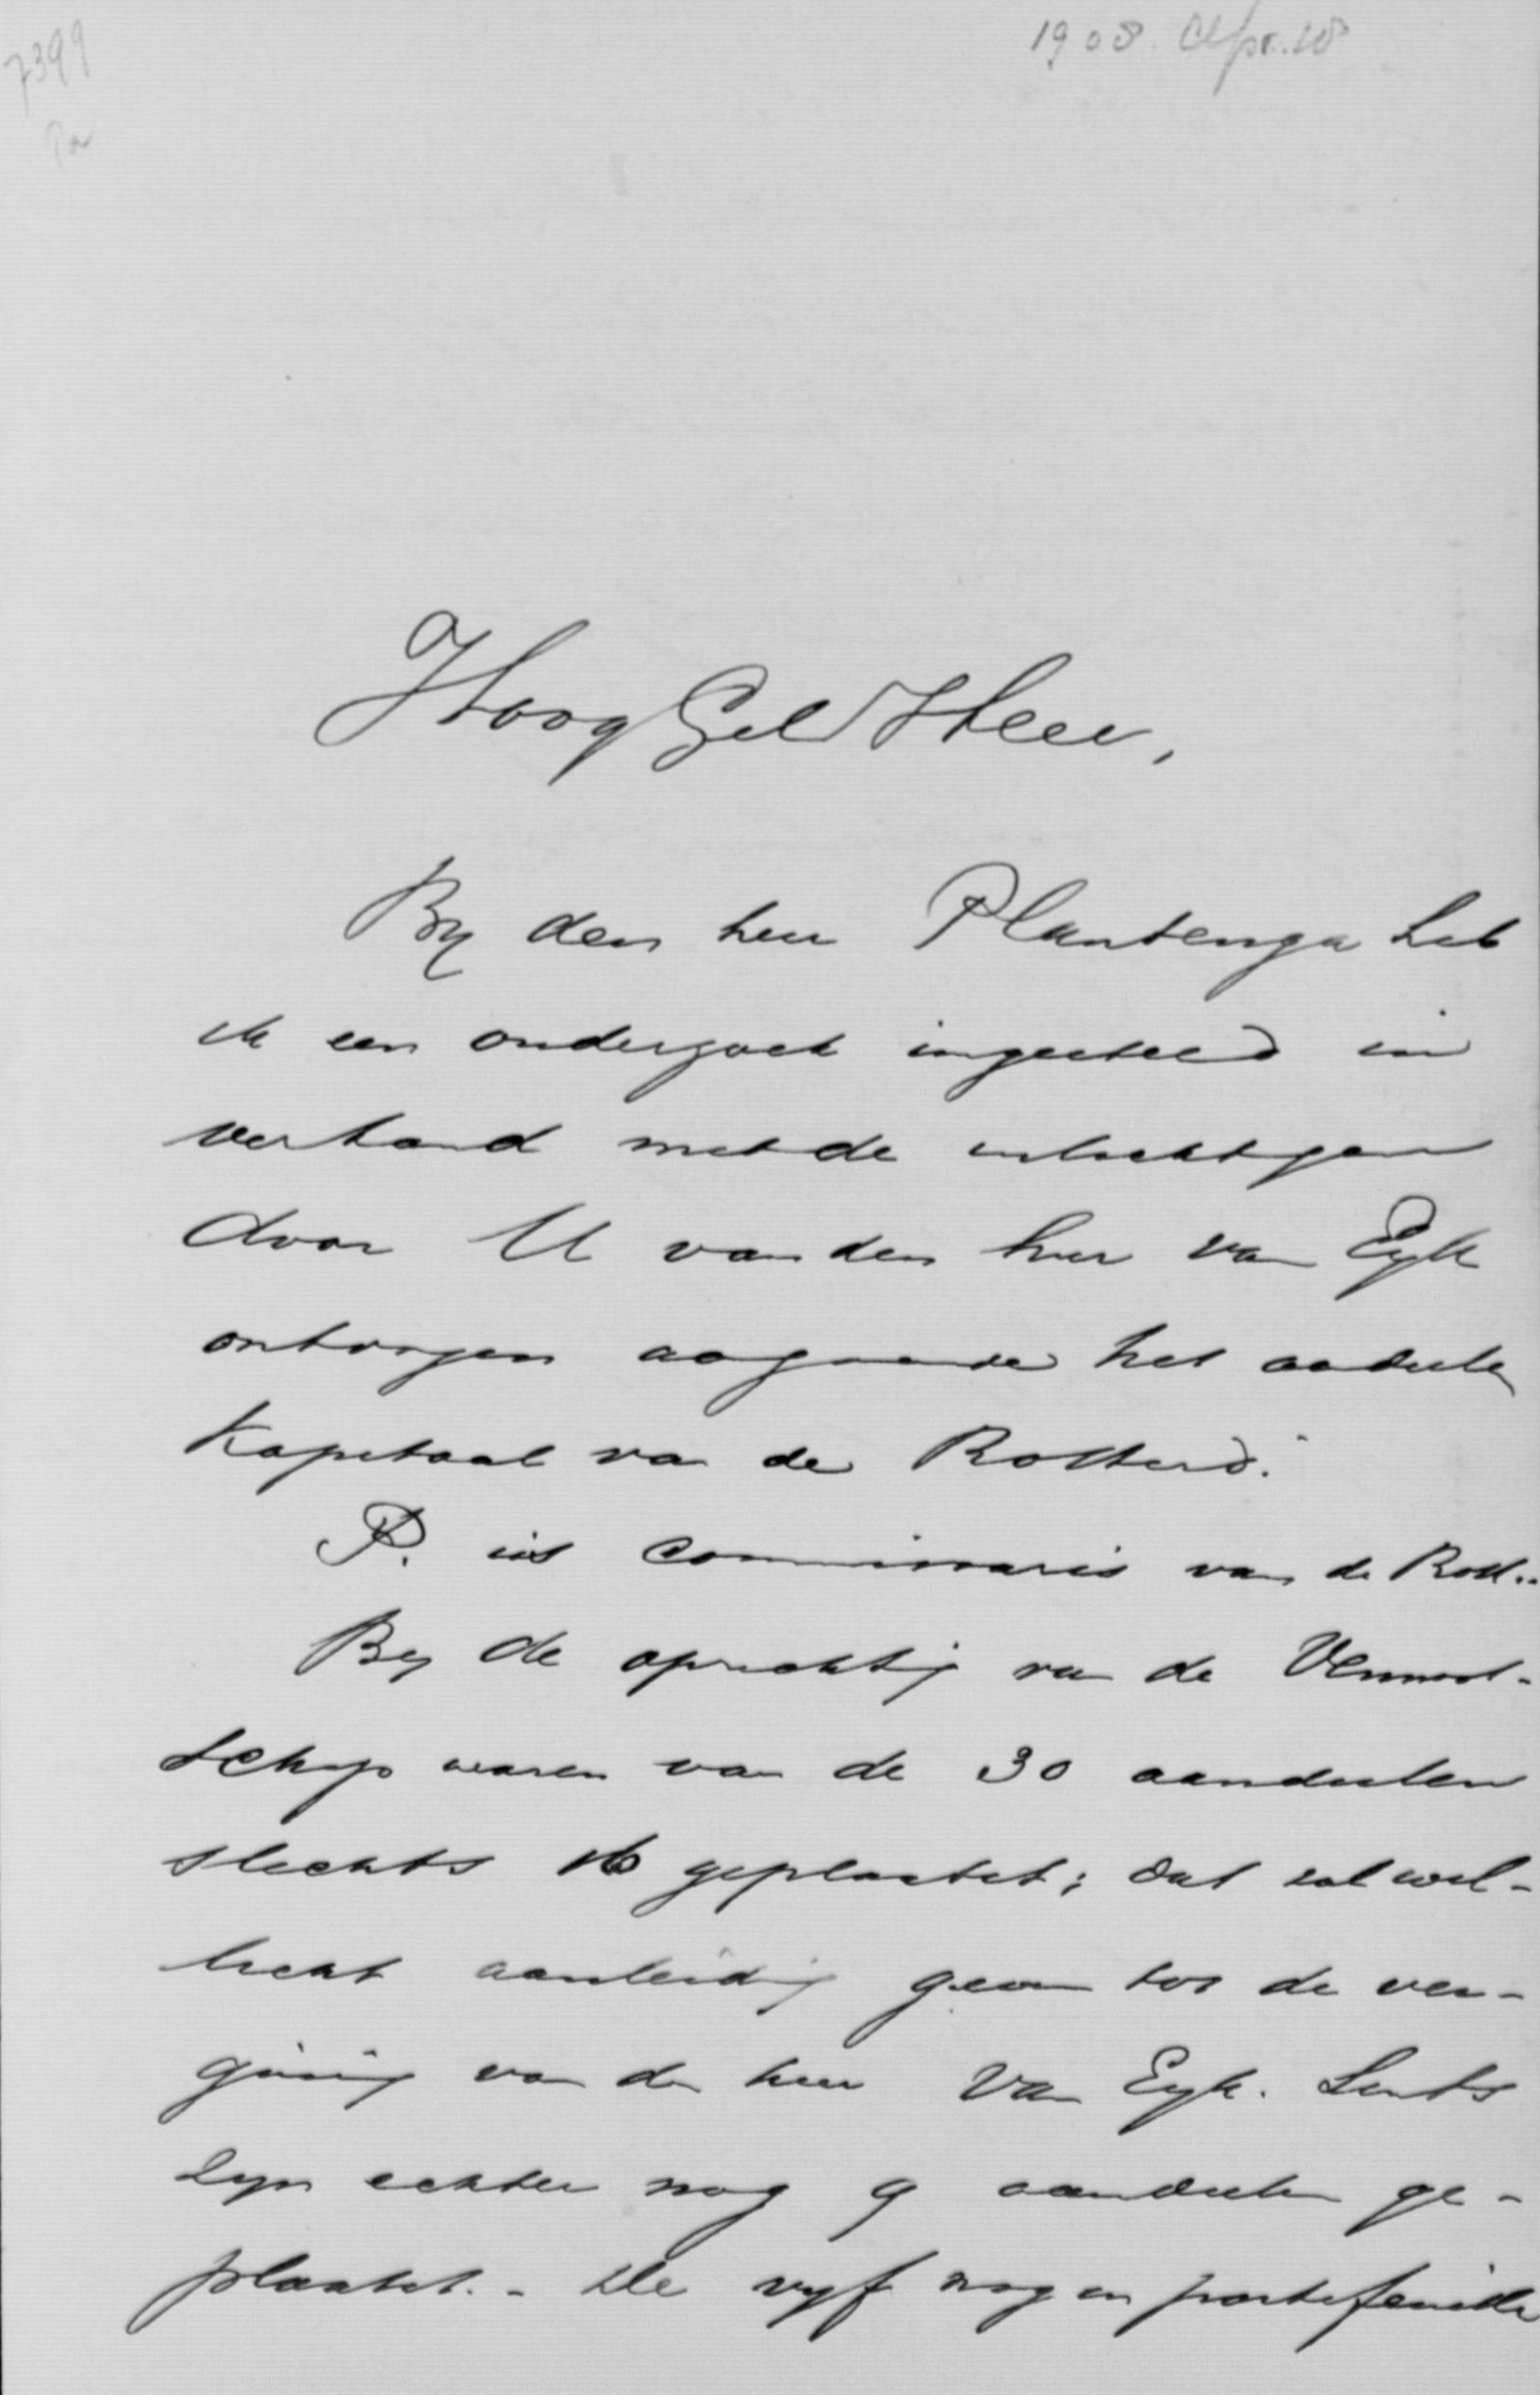 7399
1908. Apr. 18
Pa
HoogGel Heer,
By den heer Plantenga heb
ik een onderzoek ingesteld in
verband met de inlichtgen
door U van den heer van Eyk
ontvangen aangaande het aandeelen
Kapitaal van de Rotterd.
P. is commissaris van de Rott..
By de oprichting van de Vennoot-
schap waren van de 30 aandeelen
slechts 16 geplaatst; dat zal wel-
licht aanleiding geven tot de ver-
gissing van den heer van Eyk. Sints
zyn echter nog 9 aandeelen ge-
plaatst. - De vyf nog in portefeuille